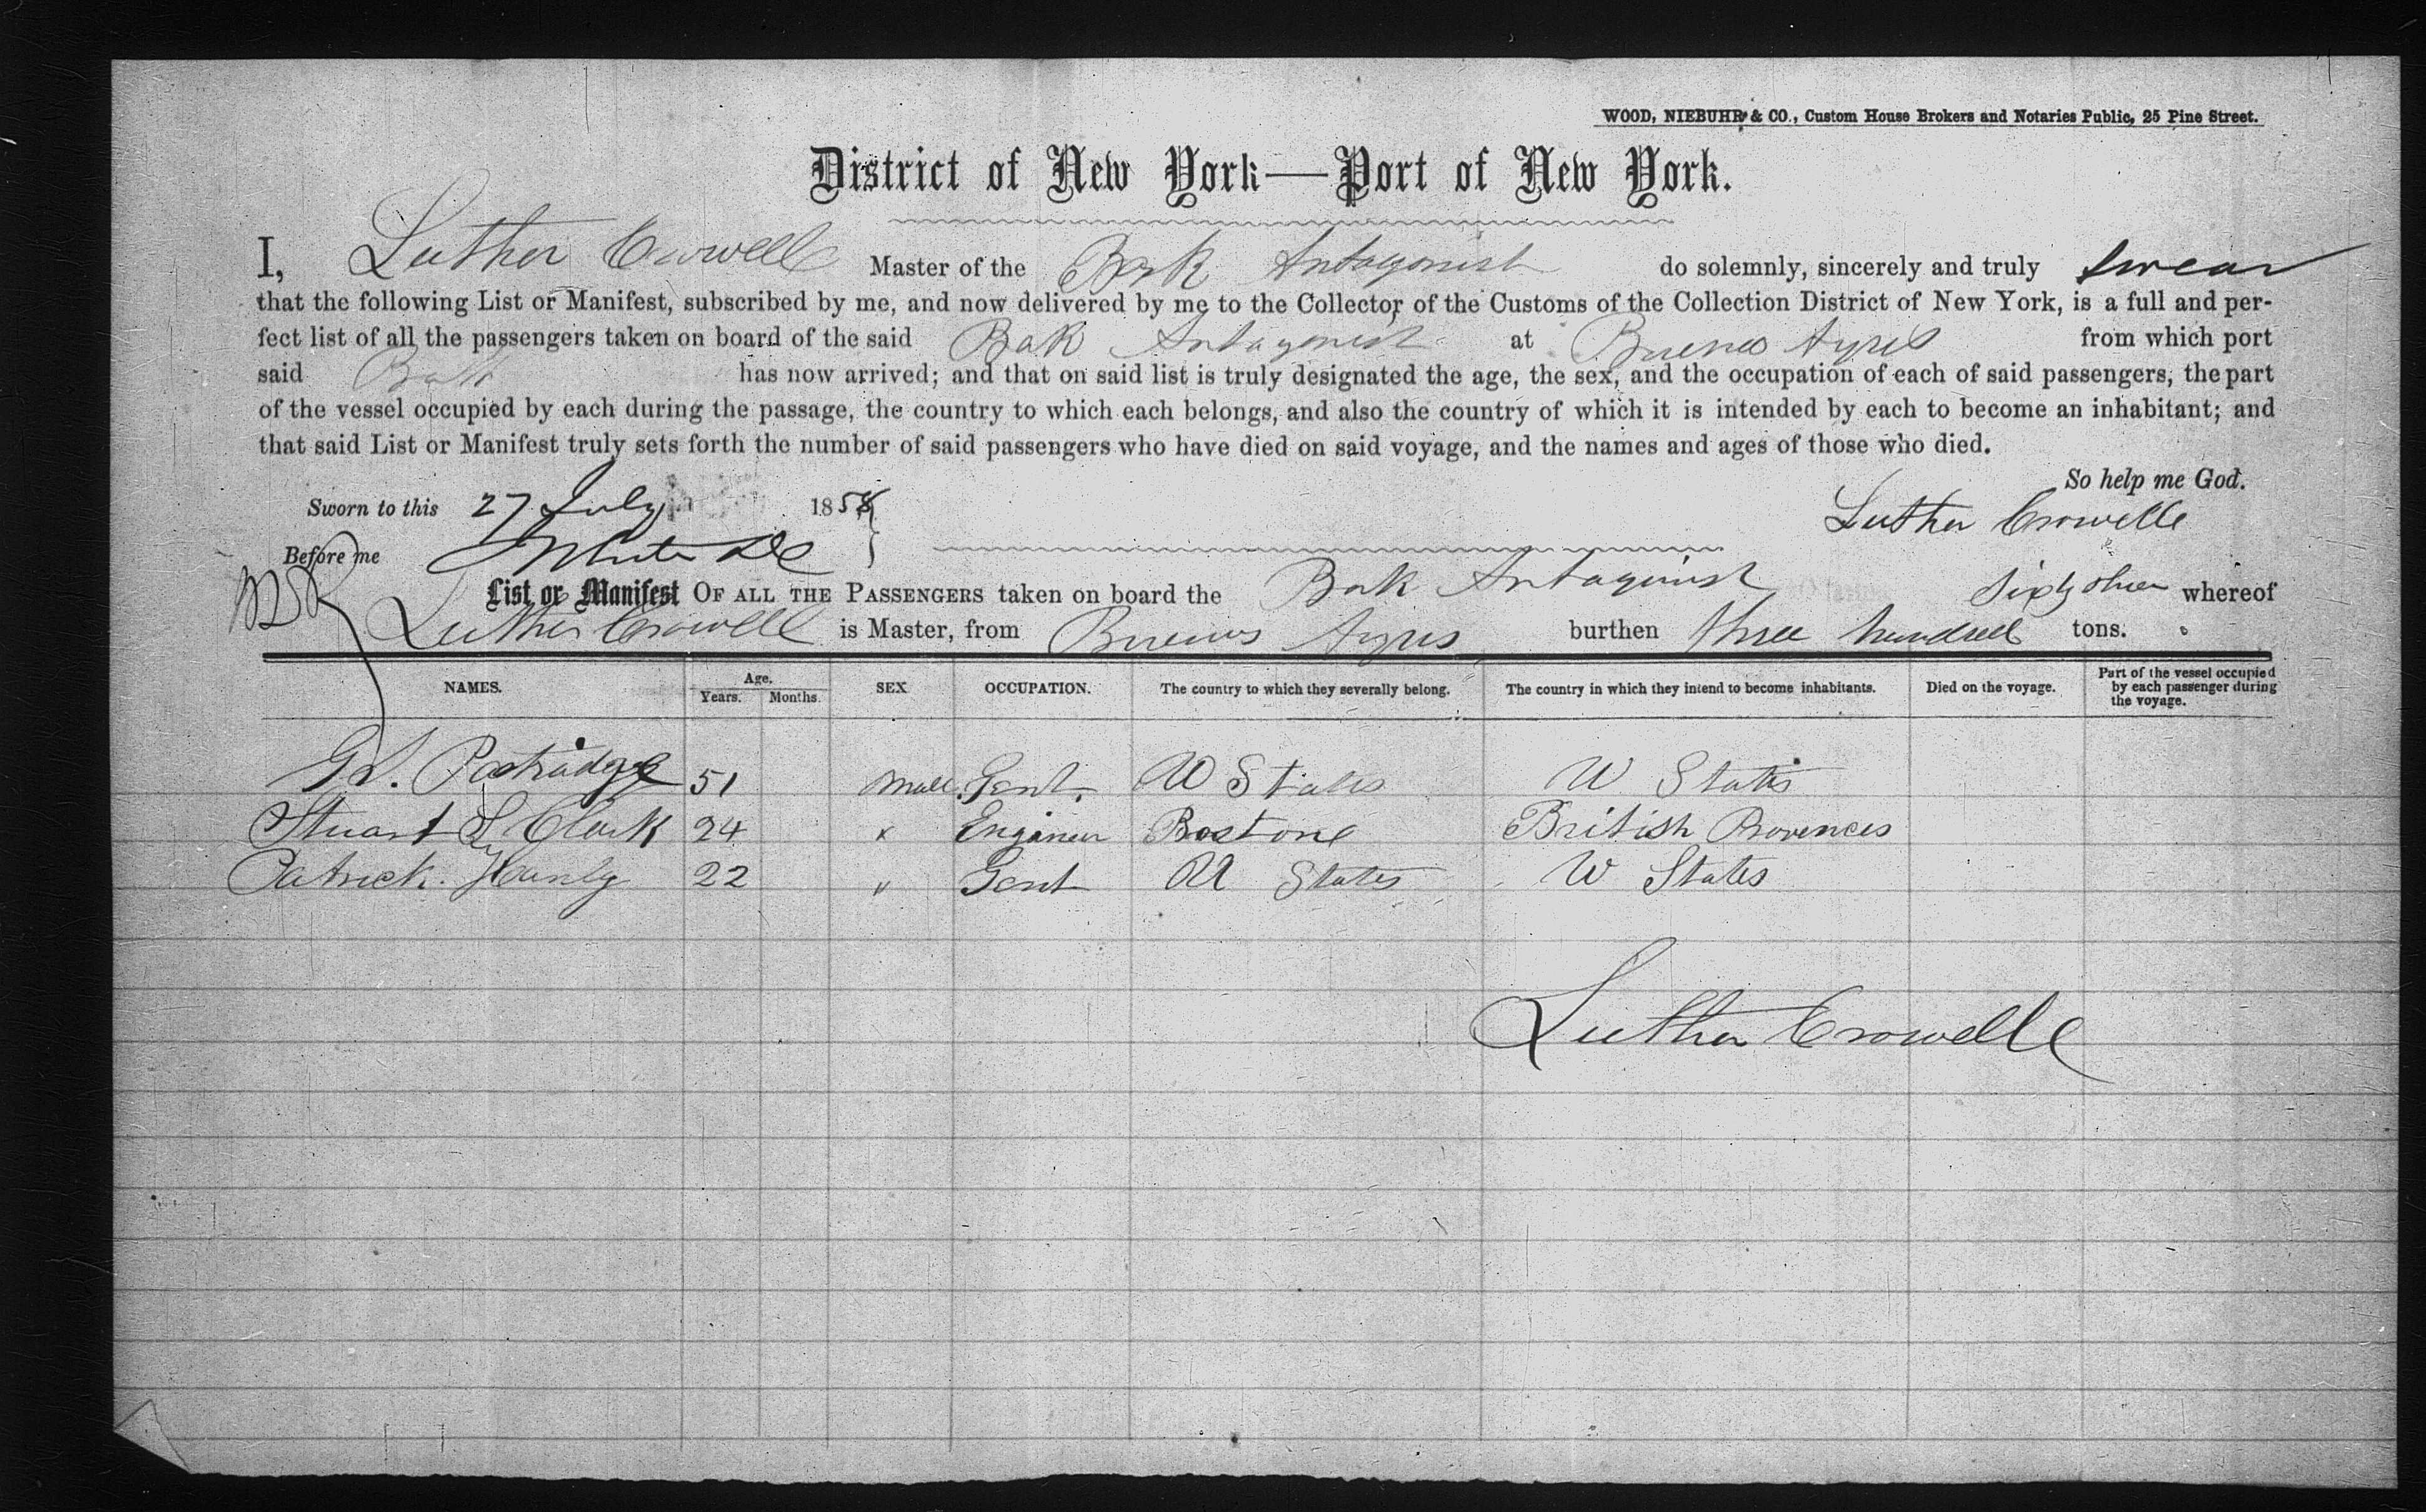 WOOD, NIEBUHR & CO., Custom House Brokers and Notaries Public, 25 Pine Street.
District of New York—Port of New York.
I, Luther Crowell Master of the Bark Antagonist do solemnly, sincerely and truly swear
that the following List or Manifest, subscribed by me, and now delivered by me to the Collector of the Customs of the Collection District of New York, is a full and per-
fect list of all the passengers taken on board of the said Bark Antagonist at Buenos Ayres from which port
said Bark has now arrived; and that on said list is truly designated the age, the sex, and the occupation of each of said passengers, the part
of the vessel occupied by each during the passage, the country to which each belongs, and also the country of which it is intended by each to become an inhabitant; and
that said List or Manifest truly sets forth the number of said passengers who have died on said voyage, and the names and ages of those who died.
So help me God.
Sworn to this 27 July 1858 Luther Crowell
Before me
List or Manifest OF ALL THE PASSENGERS taken on board the Bark Antagonist whereof
Luther Crowell is Master, from Buenos Ayres burthen three hundred sixty tons.
NAMES. Age. Years. Months. SEX OCCUPATION. The country to which they severally belong. The country in which they intend to become inhabitants. Died on the voyage. Part of the vessel occupied by each passenger during the voyage.
Partridge 51 Male. Gent. U States U States
Stuart S Clark 24 " Engineer Bostone British Provences
Patrick Hanly 22 " Gent U States U States
Luther Crowell